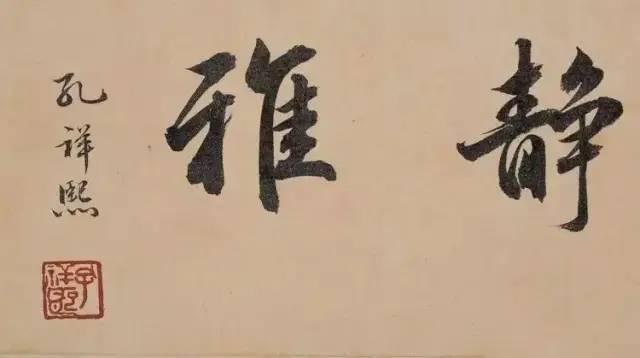 静雅
孔祥熙